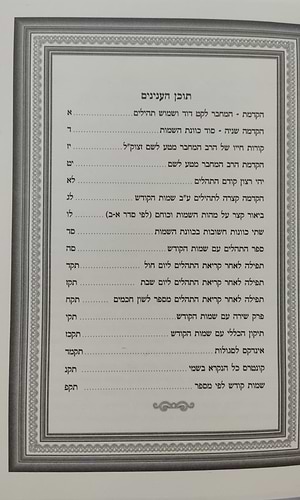 תוכן הענינים
הקדמת - המחבר לקט דוד ושמוש תהילים א
הקדמה שניה - סוד כוונת השמות ד
קורות חייו של הרב המחבר מטע לשם זצוק"ל יז
הקדמת הרב המחבר מטע לשם יט
יהי רצון קודם התהלים לא
הקדמה קצרה לתהילים ע"ב שמות הקודש לג
ביאור קצר על מהות השמות וכוחם (לפי סדר א-ב) לו
שתי כוונות חשובות בכוונת השמות סד
ספר התהלים עם שמות הקודש סה
תפילה לאחר קריאת התהלים ליום חול תקד
תפילה לאחר קריאת התהלים ליום שבת תקו
תפילה לאחר קריאת התהלים מספר לשון חכמים תקח
פרק שירה עם שמות הקודש תקי
תיקון הכללי עם שמות הקודש תקכו
אינדקס לסגולות תקמד
קונטרס כל הנקרא בשמי תקנ
שמות קודש לפי מספר תקפ